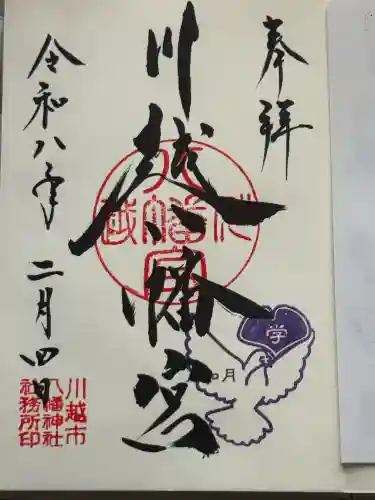 奉拝
川越八幡宮
令和八年二月四日
川越八幡宮
学
如月
川越市
八幡神社
社務所印